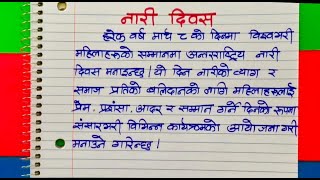 नारी दिवस
हरेक वर्ष मार्च ८ का दिनमा विश्वभरी
महिलाहरूको सम्मानमा अन्तरराष्ट्रिय नारी
दिवस मनाइन्छ। यो दिन नारीको त्याग र
समाज प्रतिको बलिदानको लागी महिलाहरूलाई
प्रेम, प्रशंसा, आदर र सम्मान गर्ने दिनको रूपमा
संसारभरी विभिन्न कार्यक्रमको आयोजना गरी
मनाउने गरिन्छ।